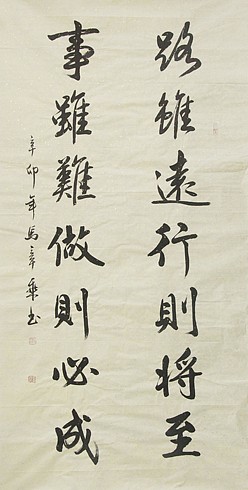 路雖遠行則将至
事雖難做則必成
辛卯年馬章乗书